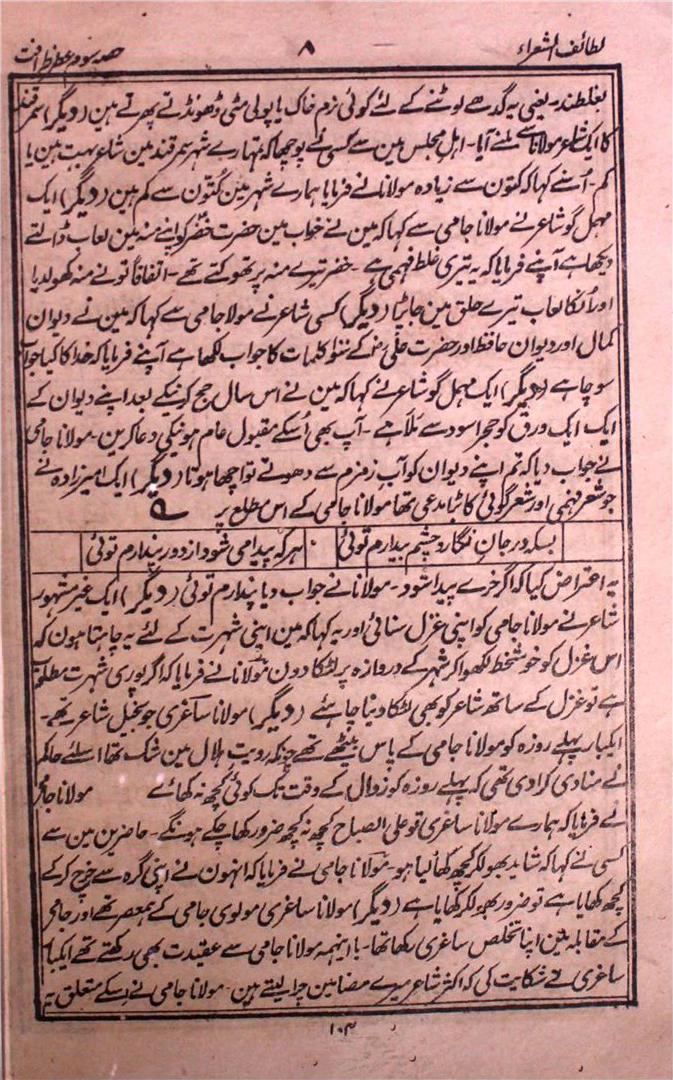 لطائف الشعراء ۸ حصہ سوم عطر ظرافت
بغلطند۔ یعنی یہ گدھے لوٹنے کے لئے کوئی نرم خاک یا پولی مٹی ڈھونڈتے پھرتے ہین (دیگر) سمرقند
کا ایک شاعر مولانا سے ملنے آیا۔ اہل مجلس مین سے کسی نے پوچھا کہ تمہارے شہر سمرقند مین شاعر بہت ہین یا
کم۔ اُسنے کہا کہ کتون سے زیادہ مولانا نے فرمایا ہمارے شہر مین کُتون سے کم ہین (دیگر) ایک
مہمل گو شاعر نے مولانا جامی سے کہا کہ مین نے خواب مین حضرت خضر کو اپنے منہ مین لعاب ڈالتے
دیکھا ہے آپنے فرمایا کہ یہ تیری غلط فہمی ہے۔ خضر تیرے منہ پر تھوکتے تھے۔ اتفاقاً تو نے منہ کھولدیا
اور اُنکا لعاب تیرے حلق مین جا پڑا (دیگر) کسی شاعر نے مولا جامی سے کہا کہ مین نے دیوان
کمال اور دیوان حافظ اور حضرت علی کے سنو کلمات کا جواب لکھا ہے آپنے فرمایا کہ خدا کا کیا جواب
سوچا ہے (دیگر) ایک مہمل گو شاعر نے کہا کہ مین نے اس سال حج کرنیکے بعد اپنے دیوان کے
ایک ایک ورق کو حجر اسود سے مَلا ہے۔ آپ بھی اُسکے مقبول عام ہونیکی دعا کرین۔ مولانا جامی
نے جواب دیا کہ تم اپنے دیوان کو آب زمزم سے دھوتے تو اچھا ہوتا (دیگر) ایک امیر زادہ نے
جو شعر فہمی اور شعر گوئی کا بڑا مدعی تھا مولانا جامی کے اس مطلع پر
بسکہ در جانِ نگار و چشم بیدارم توئی ۰ ہر کہ پیدا می شود از دور پندارم توئی
یہ اعتراض کیا کہ اگر خرے پیدا شود۔ مولانا نے جواب دیا پندارم توئی (دیگر) ایک غیر مشہور
شاعر نے مولانا جامی کو اپنی غزل سنائی اور یہ کہا کہ مین اپنی شہرت کے لئے یہ چاہتا ہون کہ
اس غزل کو خوشخط لکھوا کر شہر کے دروازہ پر لٹکا دون مولانا نے فرمایا کہ اگر پوری شہرت مطلوب
ہے تو غزل کے ساتھ شاعر کو بھی لٹکا دینا چاہئے (دیگر) مولانا ساغری جو بخیل شاعر تھے۔
ایکبار پہلے روزہ کو مولانا جامی کے پاس بیٹھے تھے چونکہ رویت ہلال مین شک تھا اسلئے حاکم
نے منادی کرا دی تھی کہ پہلے روزہ کو زوال کے وقت تک کوئی کچھ نہ کھائے مولانا جامی
نے فرمایا کہ ہمارے مولانا ساغری تو علی الصباح کچھ نہ کچھ ضرور کھا چکے ہونگے۔ حاضرین مین سے
کسی نے کہا کہ شاید بھولکر کچھ کھا لیا ہو۔ مولانا جامی نے فرمایا کہ انہون نے اپنی گرہ سے خرچ کرکے
کچھ کھایا ہے تو ضرور بھولکر کھایا ہے (دیگر) مولانا ساغری مولوی جامی کے ہمعصر تھے اور جامی
کے مقابلہ مین اپنا تخلص ساغری رکھا تھا۔ با اینہمہ مولانا جامی سے عقیدت بھی رکھتے تھے ایکبار
ساغری نے شکایت کی کہ اکثر شاعر میرے مضامین چرا لیتے ہین۔ مولانا جامی نے اسکے متعلق یہ
۱۰۴